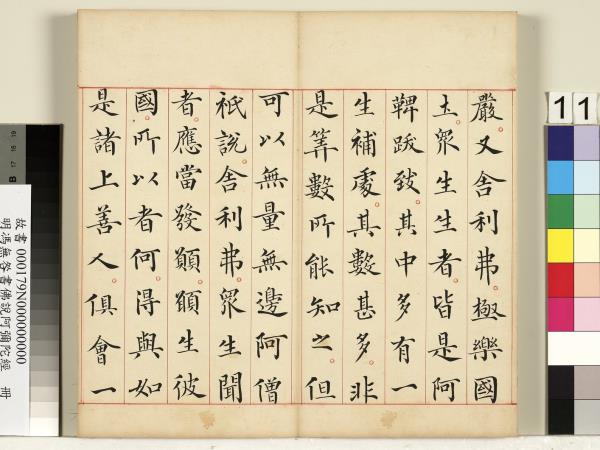 嚴又舍利弗極樂國
土眾生生者皆是阿
鞞跋致其中多有一
生補處其數甚多非
是筭數所能知之但
可以無量無邊阿僧
祇說舍利弗眾生聞
者應當發願願生彼
國所以者何得與如
是諸上善人俱會一
11
故書000179N000000000
明馮無咎書佛說阿彌陀經 冊
B